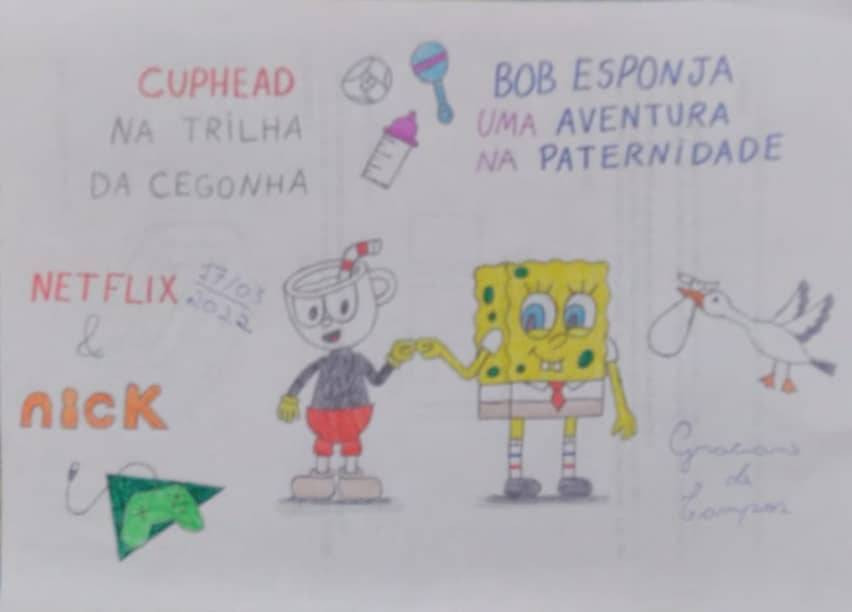 CUPHEAD
NA TRILHA
DA CEGONHA
BOB ESPONJA
UMA AVENTURA
NA PATERNIDADE
NETFLIX
17/03
2022
&
nick
Graciano
de
Campos